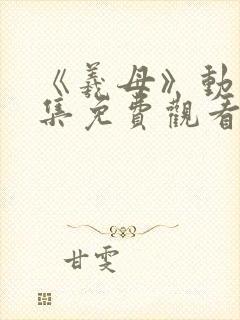 《義母》動
集免費觀看
甘雯